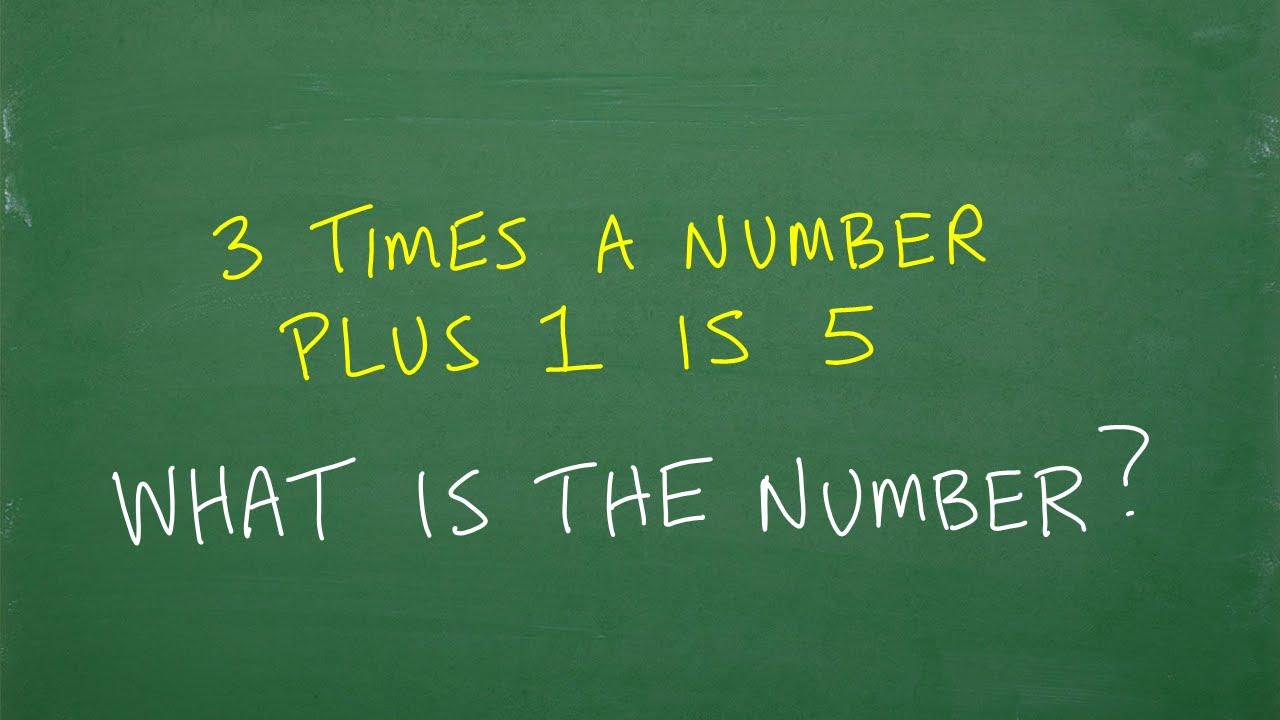 3 TIMES A NUMBER
PLUS 1 IS 5
WHAT IS THE NUMBER?